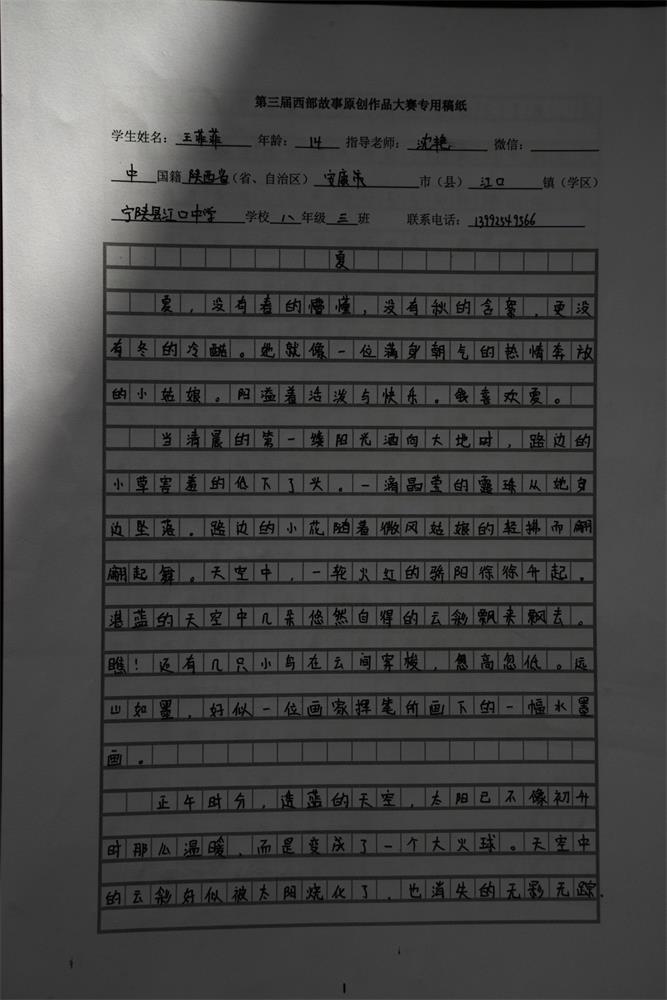 第三届西部故事原创作品大赛专用稿纸
学生姓名：王菲菲 年龄：14 指导老师：沈艳 微信：
中国籍 陕西省（省、自治区）安康市 市（县）江口 镇（学区）
宁陕县江口中学 学校 八 年级 三 班 联系电话：13992549566
夏
夏，没有春的懵懂，没有秋的含絮，更没
有冬的冷酷。她就像一位满身朝气的热情奔放
的小姑娘。阳溢着活泼与快乐。我喜欢夏。
当清晨的第一缕阳光洒向大地时，路边的
小草害羞的低下了头。一滴晶莹的露珠从她身
边坠落。路边的小花随着微风姑娘的轻拂而翩
翩起舞。天空中，一轮火红的骄阳徐徐升起。
湛蓝的天空中几朵悠然自得的云彩飘来飘去。
瞧！还有几只小鸟在云间穿梭，忽高忽低。远
山如墨，好似一位画家挥笔所画下的一幅水墨
画。
正午时分，湛蓝的天空，太阳已不像初升
时那么温暖，而是变成了一个大火球。天空中
的云彩好似被太阳烧化了，也消失的无影无踪.
1